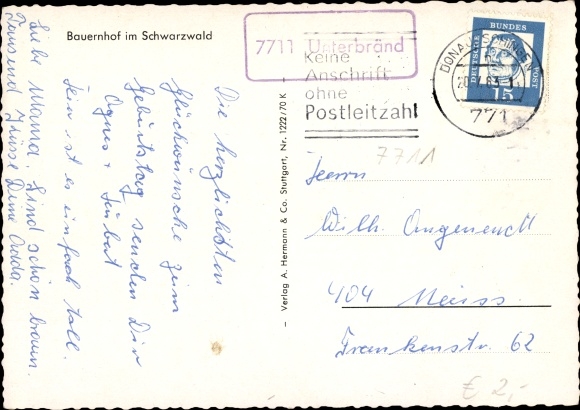 Bauernhof im Schwarzwald
7711 Unterbränd
Keine
Anschrift
ohne
Postleitzahl
DEUTSCHE
BUNDES
POST
15
DONAUESCHINGEN
771
7711
Die herzlichsten
Glückwünsche zum
Geburtstag senden Dir
Agnes +
hier ist es einfach toll.
Liebe Mama. Sind schön braun.
Tausend Grüsse Deine
– Verlag A. Hermann & Co. Stuttgart, Nr. 1222/70 K –
Herrn
Wilh.
404 Neuss
Frankenstr. 62
€ 2,-